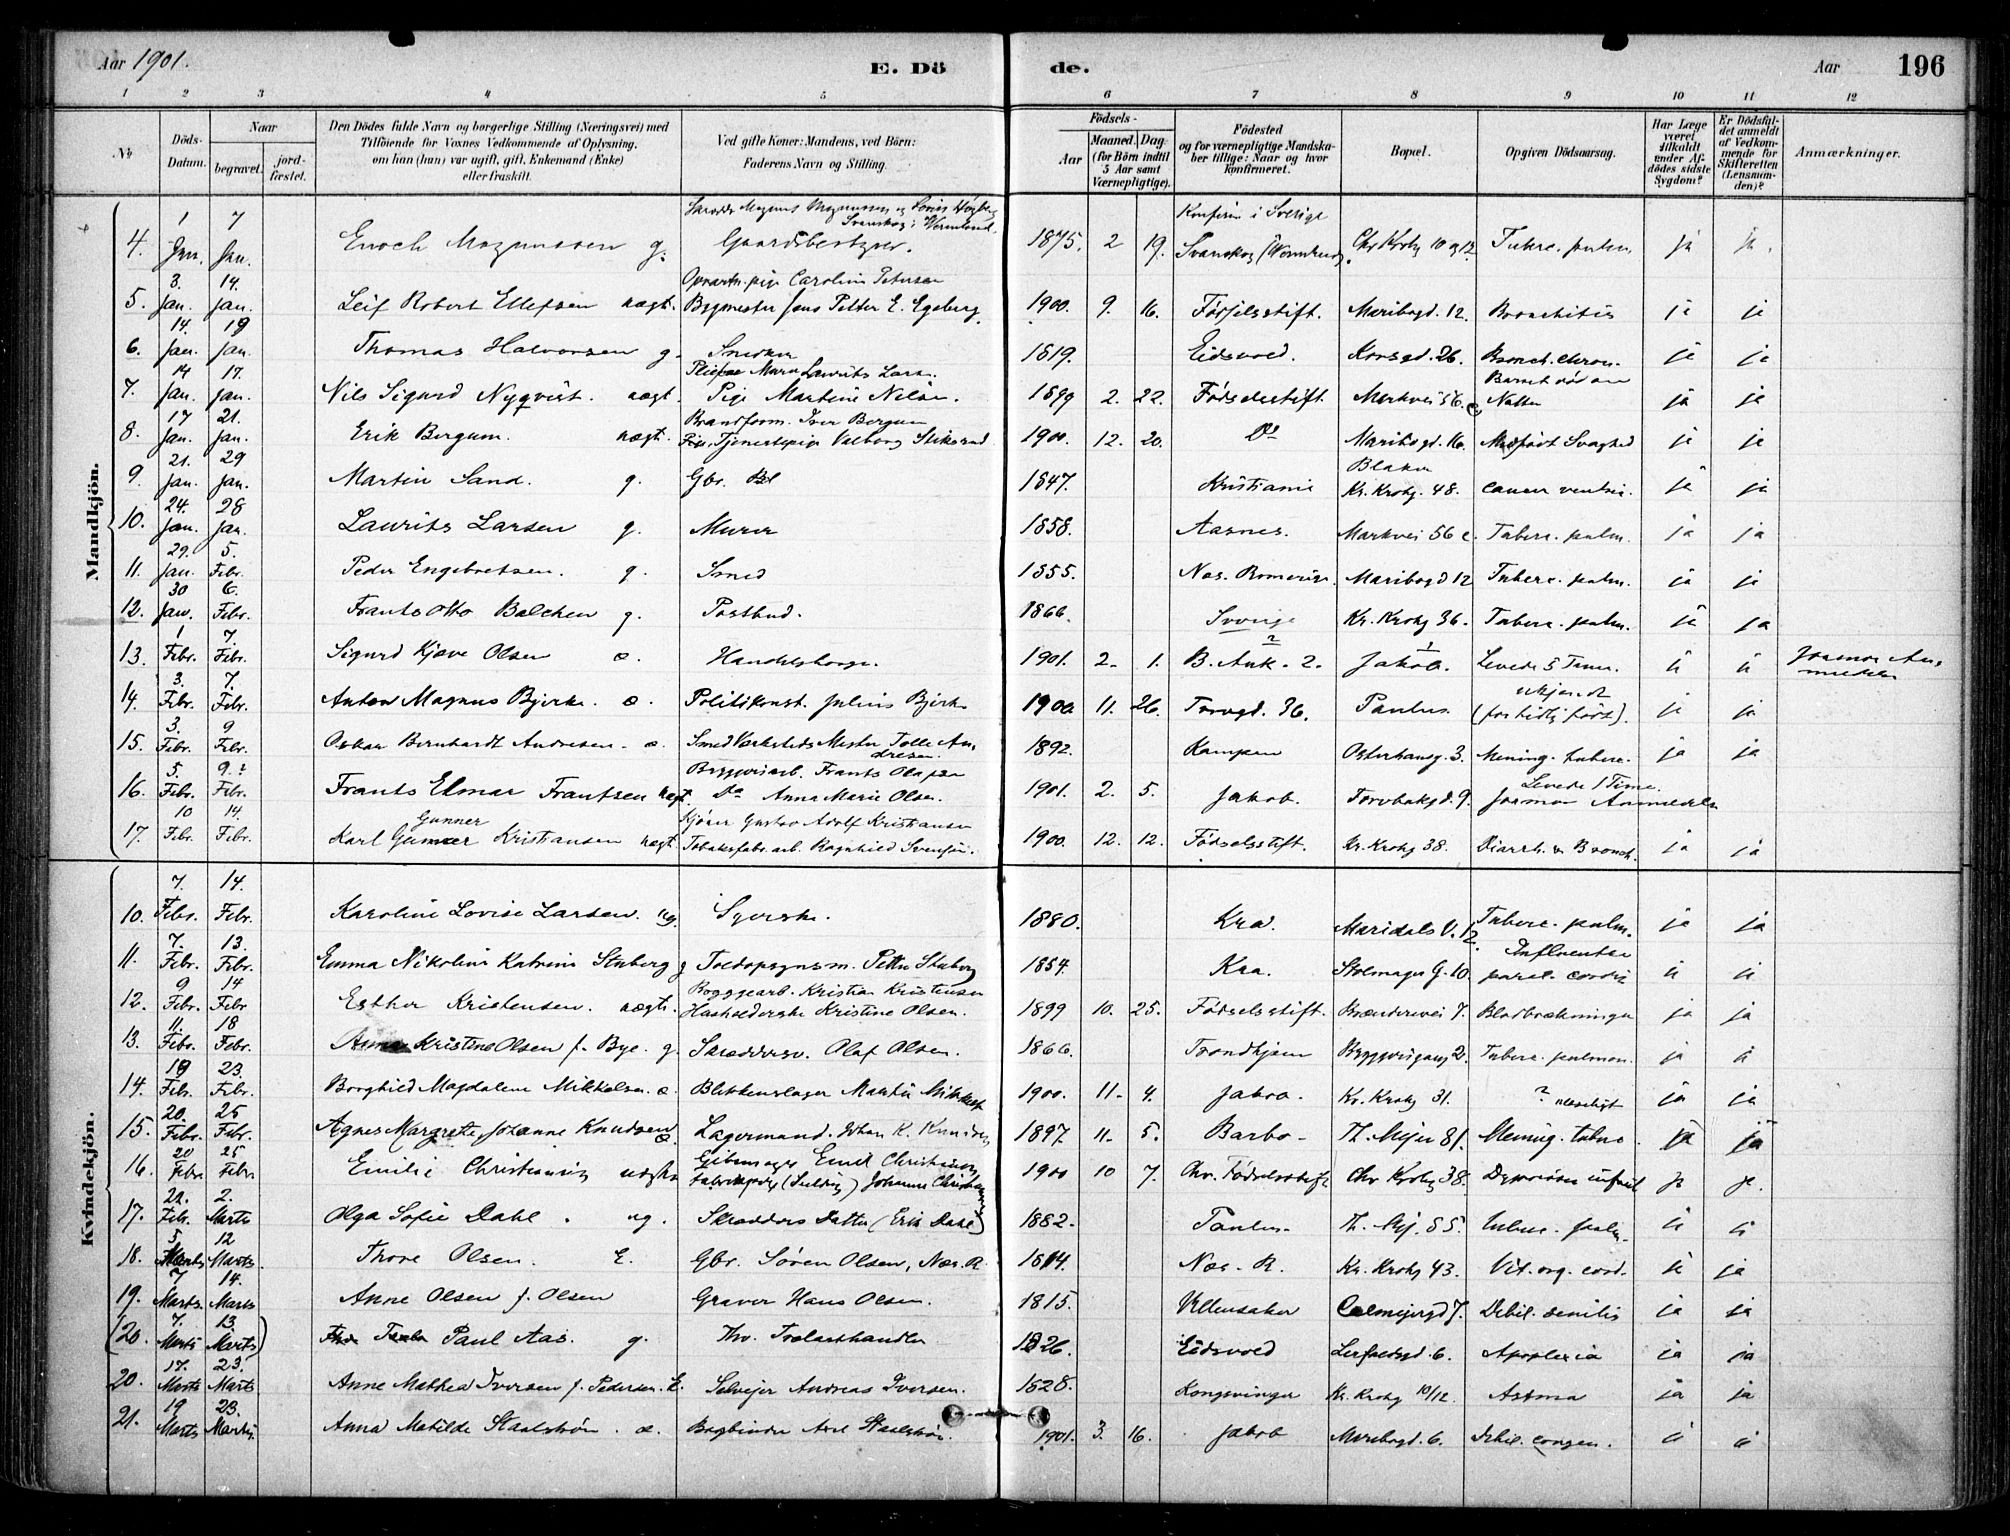 Aar 1901.
E. Döde.
Aar
196
1 2 3 4 5 6 7 8 9 10 11 12
No
Döds-Datum.
Naar begravet. jordfæstet.
Den Dödes fulde Navn og borgerlige Stilling (Næringsvei) med Tilföiende for Voxnes Vedkommende af Oplysning, om han (hun) var ugift, gift, Enkemand (Enke) eller fraskilt.
Ved gifte Koner: Mandens, ved Börn: Faderens Navn og Stilling.
Födsels-
Aar
Maaned. Dag. (for Börn indtil 5 Aar samt Værnepligtige).
Födested og for værnepligtige Mandskaber tillige: Naar og hvor konfirmeret.
Bopæl.
Opgiven Dödsaarsag.
Har Læge været tilkaldt under Afdödes sidste Sygdom?
Er Dödsfaldet anmeldt af Vedkommende for Skifteretten (Lensmanden)?
Anmærkninger.
Mandkjön.
4. 1 Jan. 7 Jan. Enoch Magnussen g. Gaardsbestyrer. 1875. 2 19. Konfirm i Sverige Svanskog (Wermland) Chr Krohg 10 og 12 Tuberc. pulm. ja ja.
5. 3. Jan. 14. Jan. Leif Robert Ellefsen uægt. Opvartn. pige Caroline Petersen Bygmester Jens Petter E. Egeberg. 1900. 9. 16. Födselsstift. Maribogd. 12. Bronchitis ja ja
6. 14. Jan. 19 Jan. Thomas Halvorsen g. Snedker 1819. Eidsvold. Korsgd. 26. Bronch. chron. ja ja
7. 14 Jan. 17. Jan. Nils Sigurd Nyqvist. uægt. Murer Laurits Larsen. Pige Martine Nelsn. 1899 2. 22. Födselsstift Markvei 56 c Barnet död om Natten ja ja
8. 17 Jan. 21. Jan. Erik Bergum. uægt. Brandform. Iver Bergum Tjenestepige Valborg 1900. 12. 20. Do Maribogd. 16. Medfödt Svaghed ja ja
9. 21. Jan. 29 Jan. Martin Sand. g. Gbr. 1847. Kristiania Blaker Kr. Krohg. 48. cancer ventric. ja ja
10. 24. Jan. 28 Jan. Laurits Larsen g. Murer 1858. Aasnes. Markvei 56 c. Tuberc. pulm. ja ja
11. 29. Jan. 5. Febr. Peder Engebretsen. g. Smed 1855. Nes. Romerige. Maribogd 12 Tuberc. pulm. ja ja
12. 30 Jan. 6. Febr. Frants Otto Balchen g. Postbud. 1866. Sverige Kr. Krohg 36. Tuberc. pulm. ja ja
13. 1 Febr. 7. Febr. Sigurd Kjøve Olsen æ. Handelsborger. 1901. 2. 1. B. Ank. 2. Jakob. Levede 5 Timer. ja ja Jormor Anmeldelse
14. 3. Febr. 7. Febr. Anton Magnus Bjerke. æ. Politikonst. Julius Bjerke 1900 11. 26. Torvgd. 36. Paulus. ukjendt (for tidlig födt). ja ja
15. 3. Febr. 9 Febr. Oskar Bernhardt Andresen. æ. Smed Værksteds Mester Tolle Andresen. 1892. Kampen Osterhausg. 3. Mening. tuberc. ja ja
16. 5. Febr. 9.? Febr. Frants Elmar Frantsen uægt. Bryggeriarb. Frants Olafsen Do Anna Marie Olsen. 1901. 2. 5. Jakob. Torvbakgd. 9. Levede 1 Time. Jormor Anmeldelse
17. 10 Febr. 14. Febr. Karl Gunner Gunner Kristiansen uægt. Kjører Gustav Adolf Kristiansen Tobaksfabr. arb. Ragnhild Svensen. 1900. 12. 12. Födselsstift. Kr. Krohg 38. Diarrh. & Bronch. ja ja
Kvindekjön.
10. 7. Febr. 14. Febr. Karoline Lovise Larsen. ug. Syerske. 1880. Kra. Maridals V. 12. Tuberc. pulm. ja ja
11. 7. Febr. 13. Febr. Emma Nikoline Katrine Stuberg g Toldopsynsm. Petter Stuberg 1854. Kra. Stolmager G. 10. Influentsa paral. cordis ja ja
12. 9 Febr. 14 Febr Esther Kristensen. uægt. Byggearb. Kristian Kristensen Husholderske Kristine Olsen. 1899 10. 25. Födselsstift. Brænderivei 7. Blodbrækninger ja ja
13. 11. Febr. 18 Febr. Anna Kristine Olsen f. Bye. g. Skræddersv. Olaf Olsen. 1866. Trondhjem Bryggerigang 2. Tuberc. pulmon. ja ja
14. 19 Febr. 23. Febr. Borghild Magdalene Mikkelsen. æ. Blikkenslager Martin Mikkelsen 1900. 11. 4. Jakob. Kr. Krohg 31. ? ja ja
15. 20. Febr. 25 Febr. Agnes Margrete Johanne Knudsen æ Lagermand. Johan K. Knudsen 1897. 11. 5. Barbo. Th. Mejer 81. Mening. tuberc. ja ja
16. 20 Febr 25 Febr Emilie Christiansen uægte Emil Christiansen 1900 10 7. Chr. Födselsstift Chr Krohg 38. ja ja.
17. 22. Febr. 2. Marts Olga Sofie Dahl. ug. Skrædders Datter (Erik Dahl) 1882. Paulus. Th. Mej. 85. Tuberc. pulm. ja ja
18. 5 Marts 12 Marts. Thore Olsen. E. Gbr. Sören Olsen, Nes. R. 1814. Nes. R. Kr. Krohg 43. Vit. org. cord. ja ja
19. 7 Marts. 14. Marts Anne Olsen f. Olsen Graver Hans Olsen. 1815. Ullensaker Colmejergd 7. Debil. senilis ja ja
(20. 7. Marts 13 Marts) Paul Aas. g. fhv. Trælasthandler 1826. Eidsvold Lerfaldsgd. 6. Apoplexia ja ja
20. 17. Marts 23. Marts Anne Mathea Iversen f. Pedersen. E. Selvejer Andreas Iversen. 1828. Kongsvinger Kr. Krohg 10/12 Astma ja ja
21. 19 Marts 23. Marts. Anna Matilde Staalström. æ. Bogbinder Axel Staalström. 1901. 3. 16. Jakob Maribogd. 6. Debil. congen. ja ja